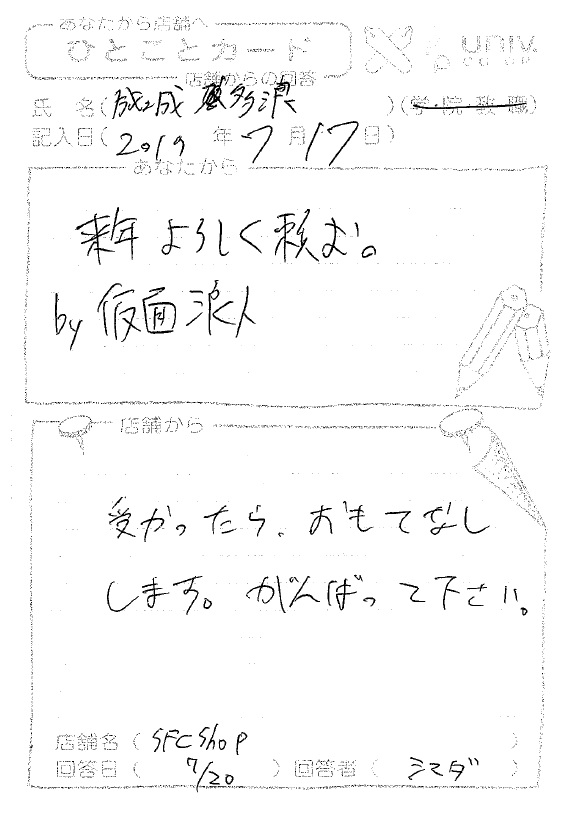 あなたから店舗へ
ひとことカード
univ.
CO-OP
店舗からの回答
氏 名( )(学・院・教・職)
記入日( 2019 年 7 月 17 日)
あなたから
来年 よろしく頼む。
by 仮面浪人
店舗から
受かったら、おもてなし
します。がんばって下さい。
店舗名( SFC Shop )
回答日( 7/20 ) 回答者( シマダ )